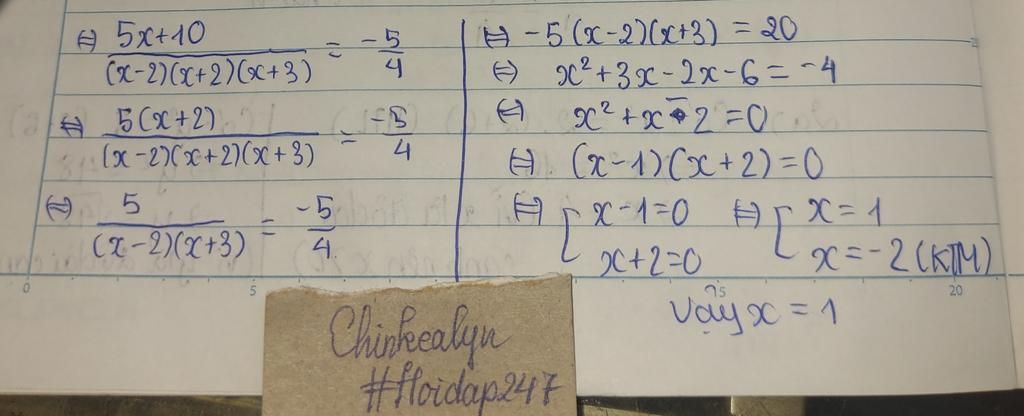 ⇔ 5x+10 / (x-2)(x+2)(x+3) = -5/4
⇔ 5(x+2) / (x-2)(x+2)(x+3) = -5/4
⇔ 5 / (x-2)(x+3) = -5/4
⇔ -5(x-2)(x+3) = 20
⇔ x²+3x-2x-6 = -4
⇔ x²+x-2 = 0
⇔ (x-1)(x+2) = 0
⇔ [ x-1=0 ⇔ [ x=1
x+2=0 x=-2 (KTM)
Vậy x = 1
0 5 15 20
Chinkealyn
#Hoidap247